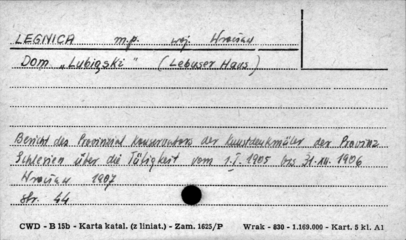 LEGNICA m.p. woj. Wrocław
Dom „Lubiąski" (Lebuser Haus)
Bericht des Provinzial Konservators der Kunstdenkmäler der Provinz
Schlesien über die Tätigkeit vom 1.I.1905 bis 31.XII.1906
Wrocław 1907
str. 44
CWD - B 15b - Karta katal. (z liniat.) - Zam. 1625/P Wrak - 830 - 1.169.000 - Kart. 5 kl. A1